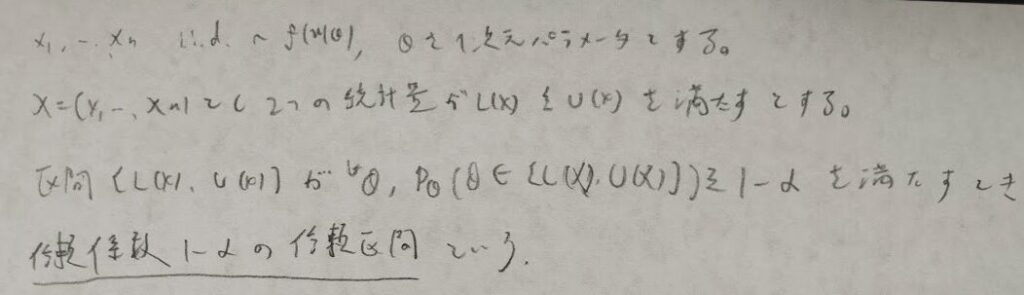 x₁, …, xₙ i.i.d. ~ f(x|θ), θを1次元パラメータとする。
X=(x₁, …, xₙ)とし2つの統計量がL(x)≦U(x)を満たすとする。
区間[L(x), U(x)]が∀θ, Pθ(θ∈[L(X), U(X)])≧1-αを満たすとき
信頼係数1-αの信頼区間という.